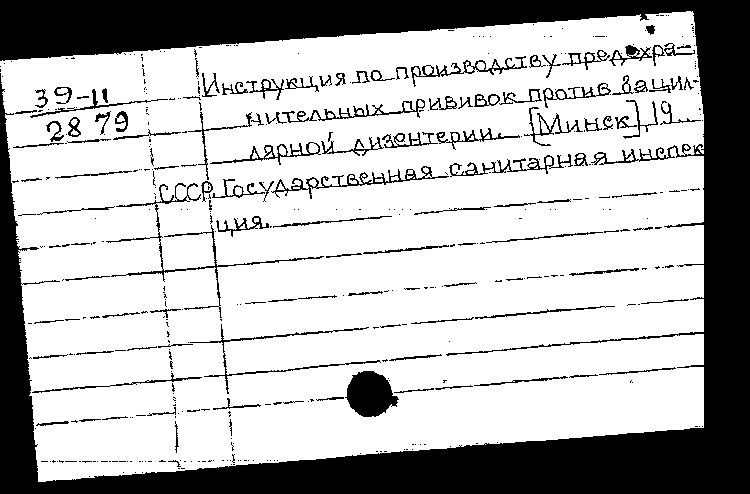 39-11
28 79
Инструкция по производству предохра-
нительных прививок против бацил-
лярной дизентерии. [Минск], 19..
СССР. Государственная санитарная инспек
ция.